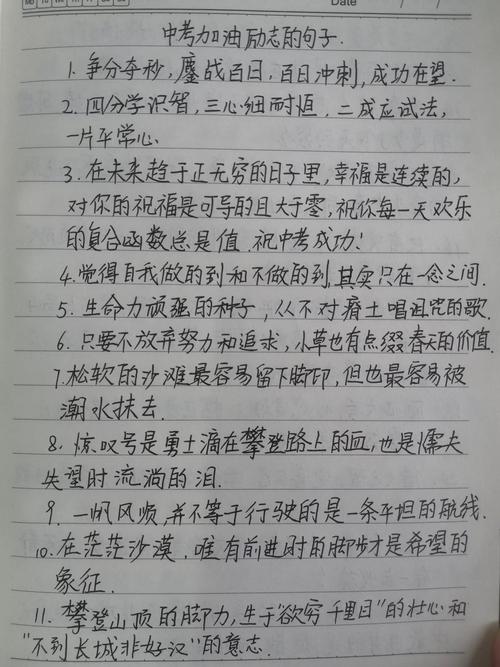 Date
中考加油励志的句子.
1. 争分夺秒，鏖战百日，百日冲刺，成功在望.
2. 四分学识智，三心细而恒，二成应试法，
一片平常心.
3. 在未来趋于正无穷的日子里，幸福是连续的，
对你的祝福是可导的且大于零，祝你每一天欢乐
的复合函数总是值.祝中考成功！
4. 觉得自我做的到和不做的到,其实只在一念之间.
5. 生命力顽强的种子，从不对瘠土唱诅咒的歌.
6. 只要不放弃努力和追求，小草也有点缀春天的价值.
7. 松软的沙滩最容易留下脚印，但也最容易被
潮水抹去.
8. 惊叹号是勇士滴在攀登路上的血，也是懦夫
失望时流淌的泪.
9. 一帆风顺，并不等于行驶的是一条平坦的航线.
10. 在茫茫沙漠，唯有前进时的脚步才是希望的
象征.
11. 攀登山顶的脚力，生于“欲穷千里目”的壮心和
“不到长城非好汉”的意志.